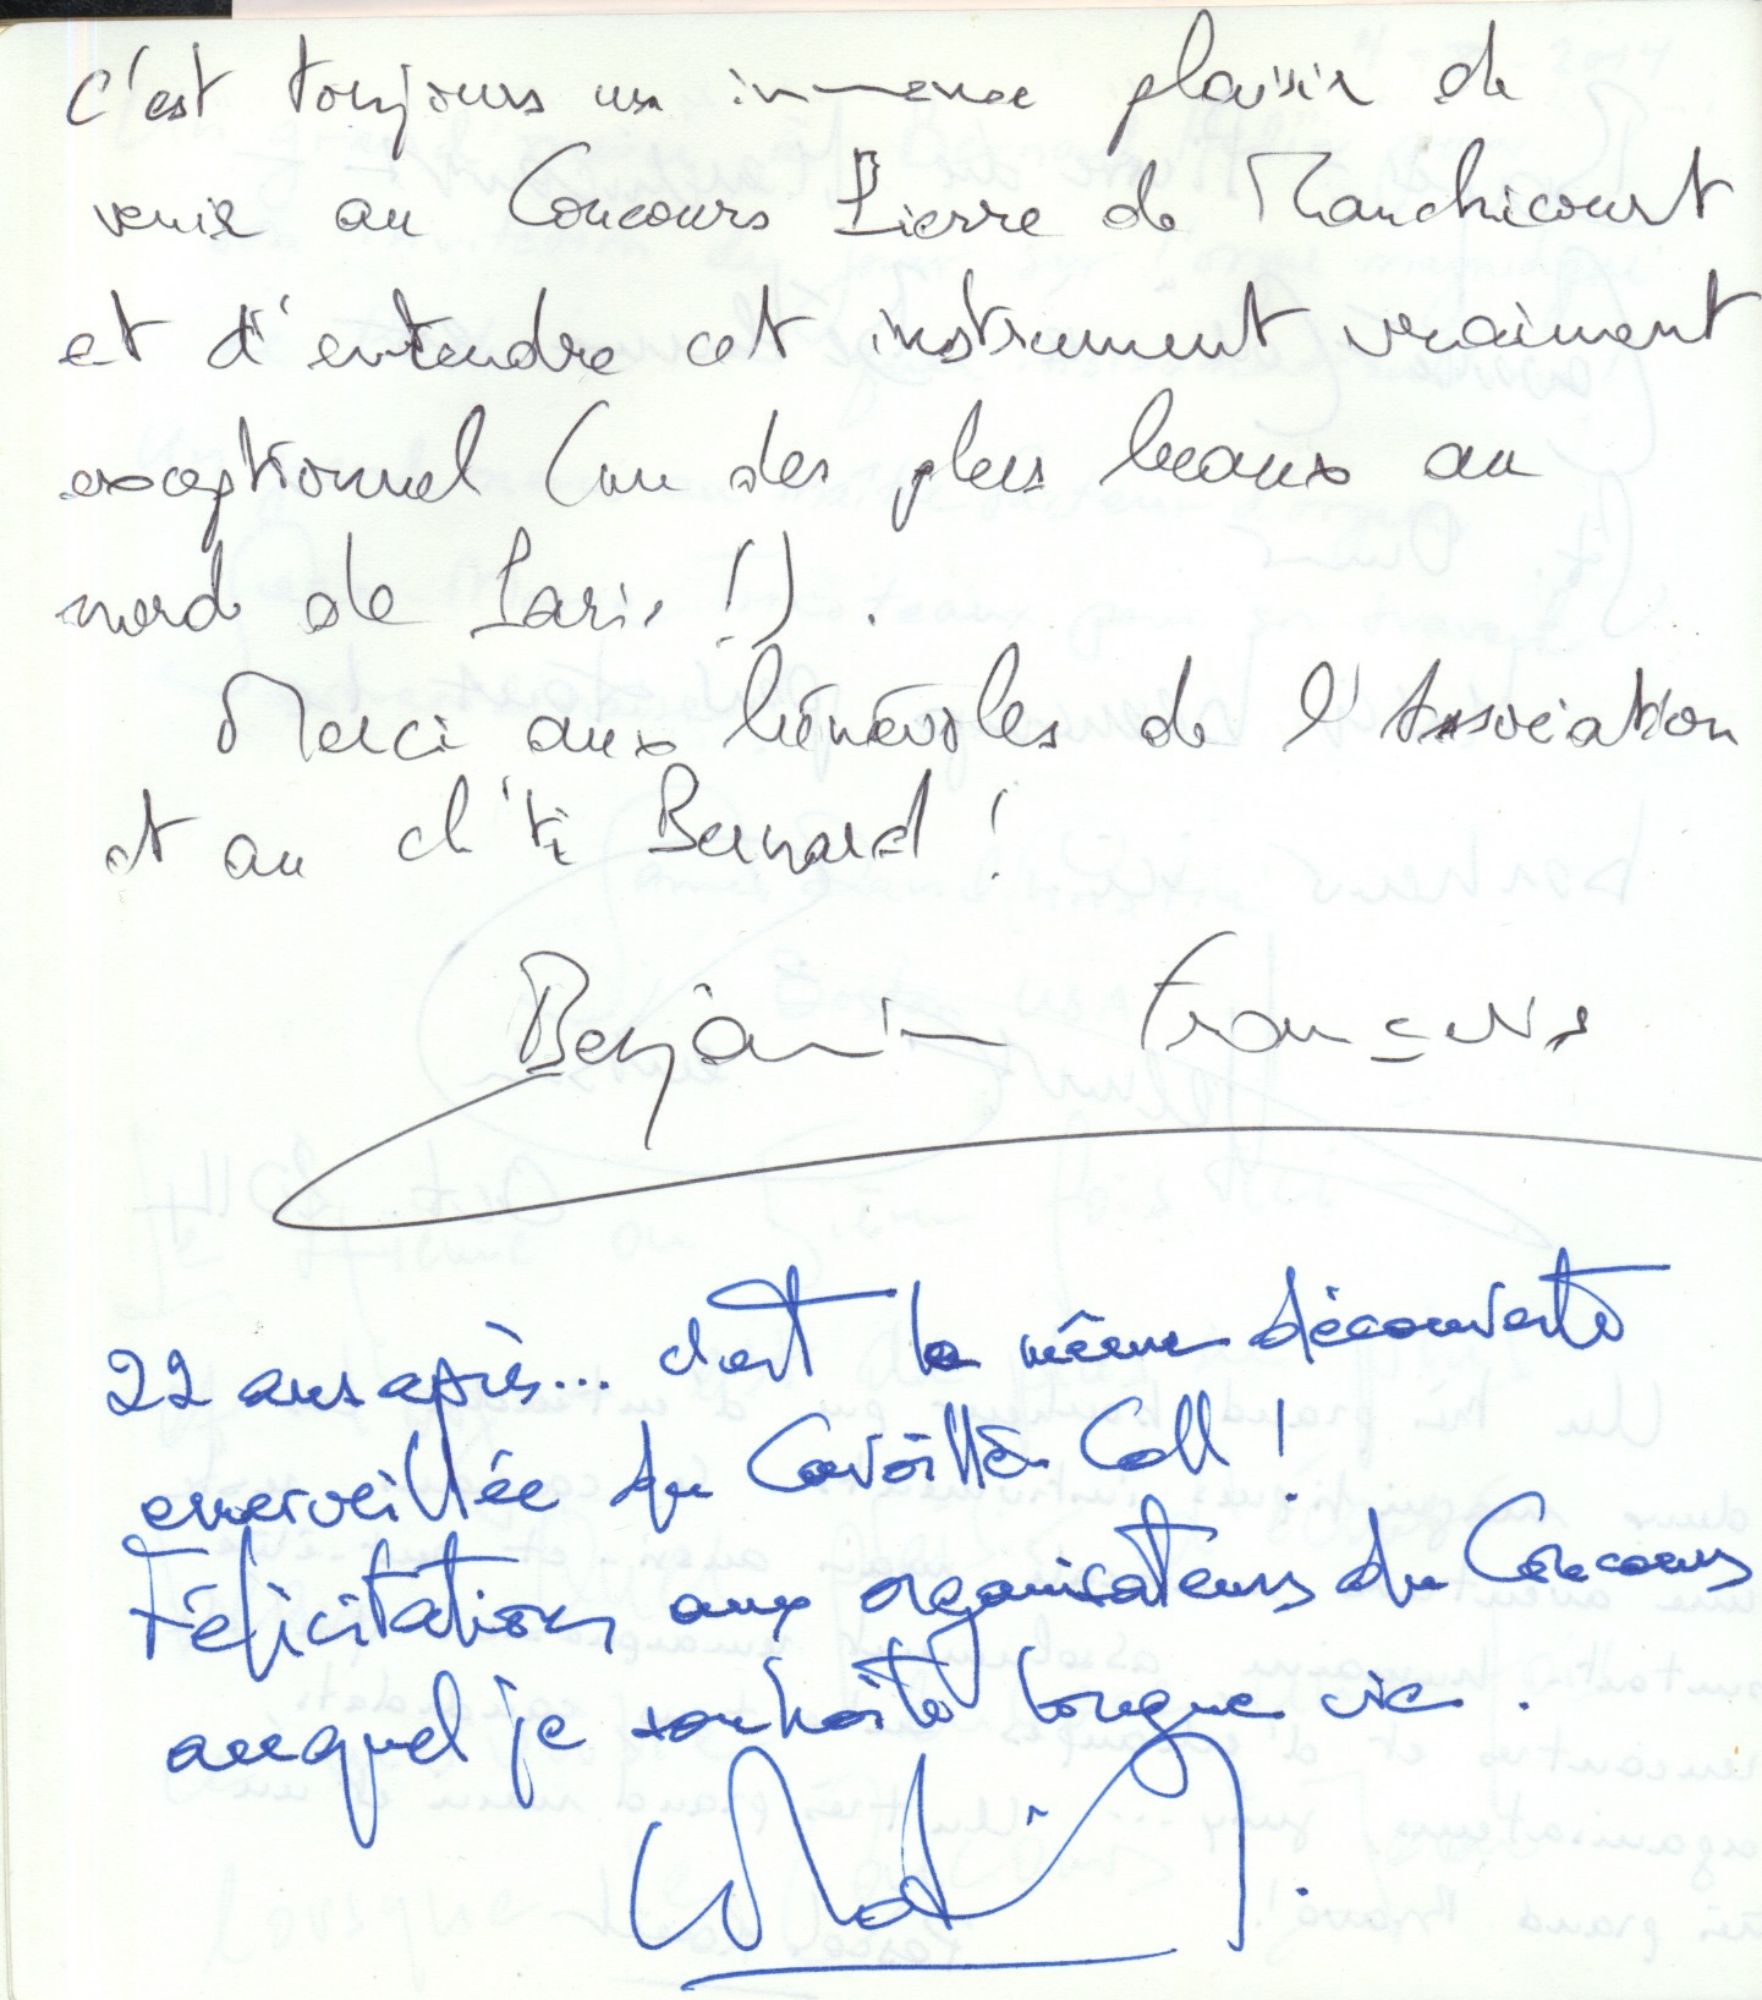 C'est toujours un immense plaisir de
venir au Concours Pierre de Manchicourt
et d'entendre cet instrument vraiment
exceptionnel (un des plus beaux au
nord de Paris !).
Merci aux bénévoles de l'Association
et au ch'ti Bernard !
Benjamin François
22 ans après... c'est la même découverte
émerveillée du Cavaillé-Coll !
Félicitations aux organisateurs du Concours
auquel je souhaite longue vie.